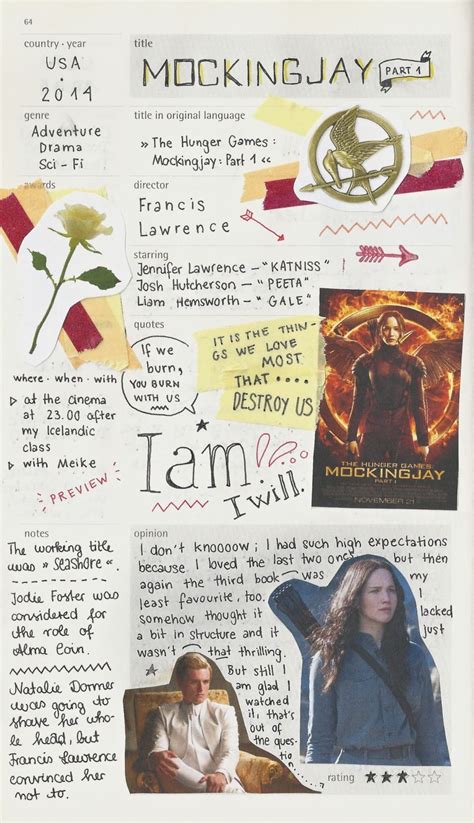 64
country · year
USA
·
2014
title
MOCKINGJAY PART 1
genre
Adventure
Drama
Sci-Fi
title in original language
» The Hunger Games:
Mockingjay: Part 1 «
awards
director
Francis
Lawrence
starring
Jennifer Lawrence – "KATNISS"
Josh Hutcherson – "PEETA"
Liam Hemsworth – "GALE"
quotes
If we
burn,
YOU BURN
WITH US
IT IS THE THIN-
GS WE LOVE
MOST
THAT ....
DESTROY US
I am
I will.
THE HUNGER GAMES
MOCKINGJAY
PART 1
NOVEMBER 21
where · when · with
▹ at the cinema
at 23.00 after
my Icelandic
class
▹ with Meike
PREVIEW
notes
The working title
was » Seashore «.
Jodie Foster was
considered for
the role of
Alma Coin.
Natalie Dormer
was going to
shave her who-
le head, but
Francis Lawrence
convinced her
not to.
opinion
I don't knoooow; I had such high expectations
because I loved the last two ones but then
again the third book was my
least favourite, too. I
somehow thought it lacked
a bit in structure and it just
wasn't that thrilling.
But still I
am glad I
watched
it, that's
out of
the ques-
tion
rating ★★★☆☆